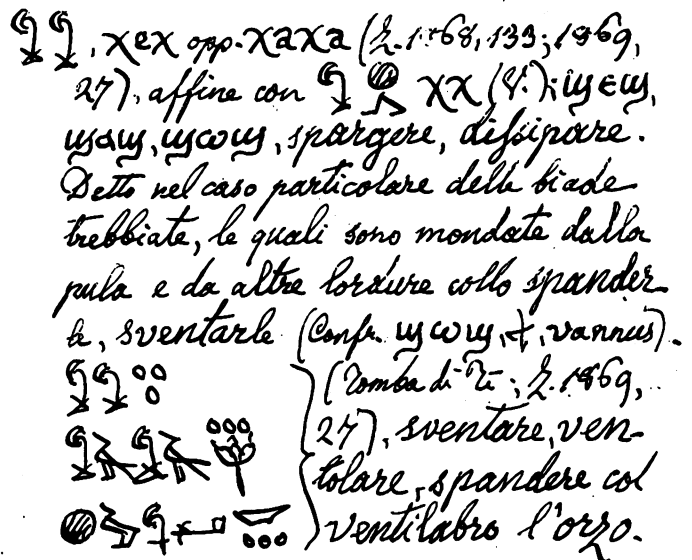 χeχ opp. χaχa (Z. 1868, 133; 1869,
27), affine con χχ (V.); ϣⲉϣ,
ϣⲁϣ, ϣⲱϣ, spargere, dissipare.
Detto nel caso particolare delle biade
trebbiate, le quali sono mondate dalla
pula e da altre lordure collo spander-
le, sventarle (Confr. ϣⲱϣ, ϯ, vannus).
(Tomba di Ti; Z. 1869,
27), sventare, ven-
tolare, spandere col
ventilabro l'orzo.